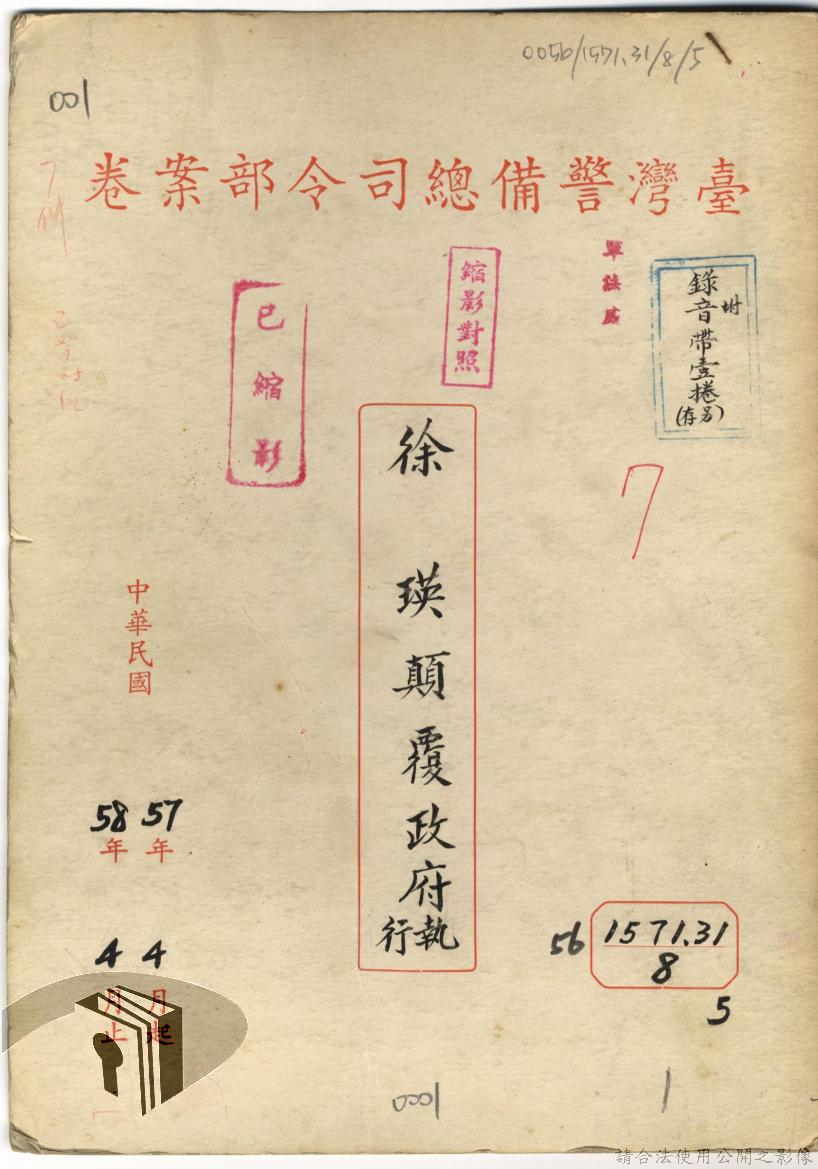 0056/1571.31/8/5
001
臺灣警備總司令部案卷
附錄音帶壹捲(另存)
縮影對照
已縮影
7
徐瑛顛覆政府執行
中華民國
57年4月起
58年4月止
56
1571.31
8
5
0001
1
請合法使用公開之影像